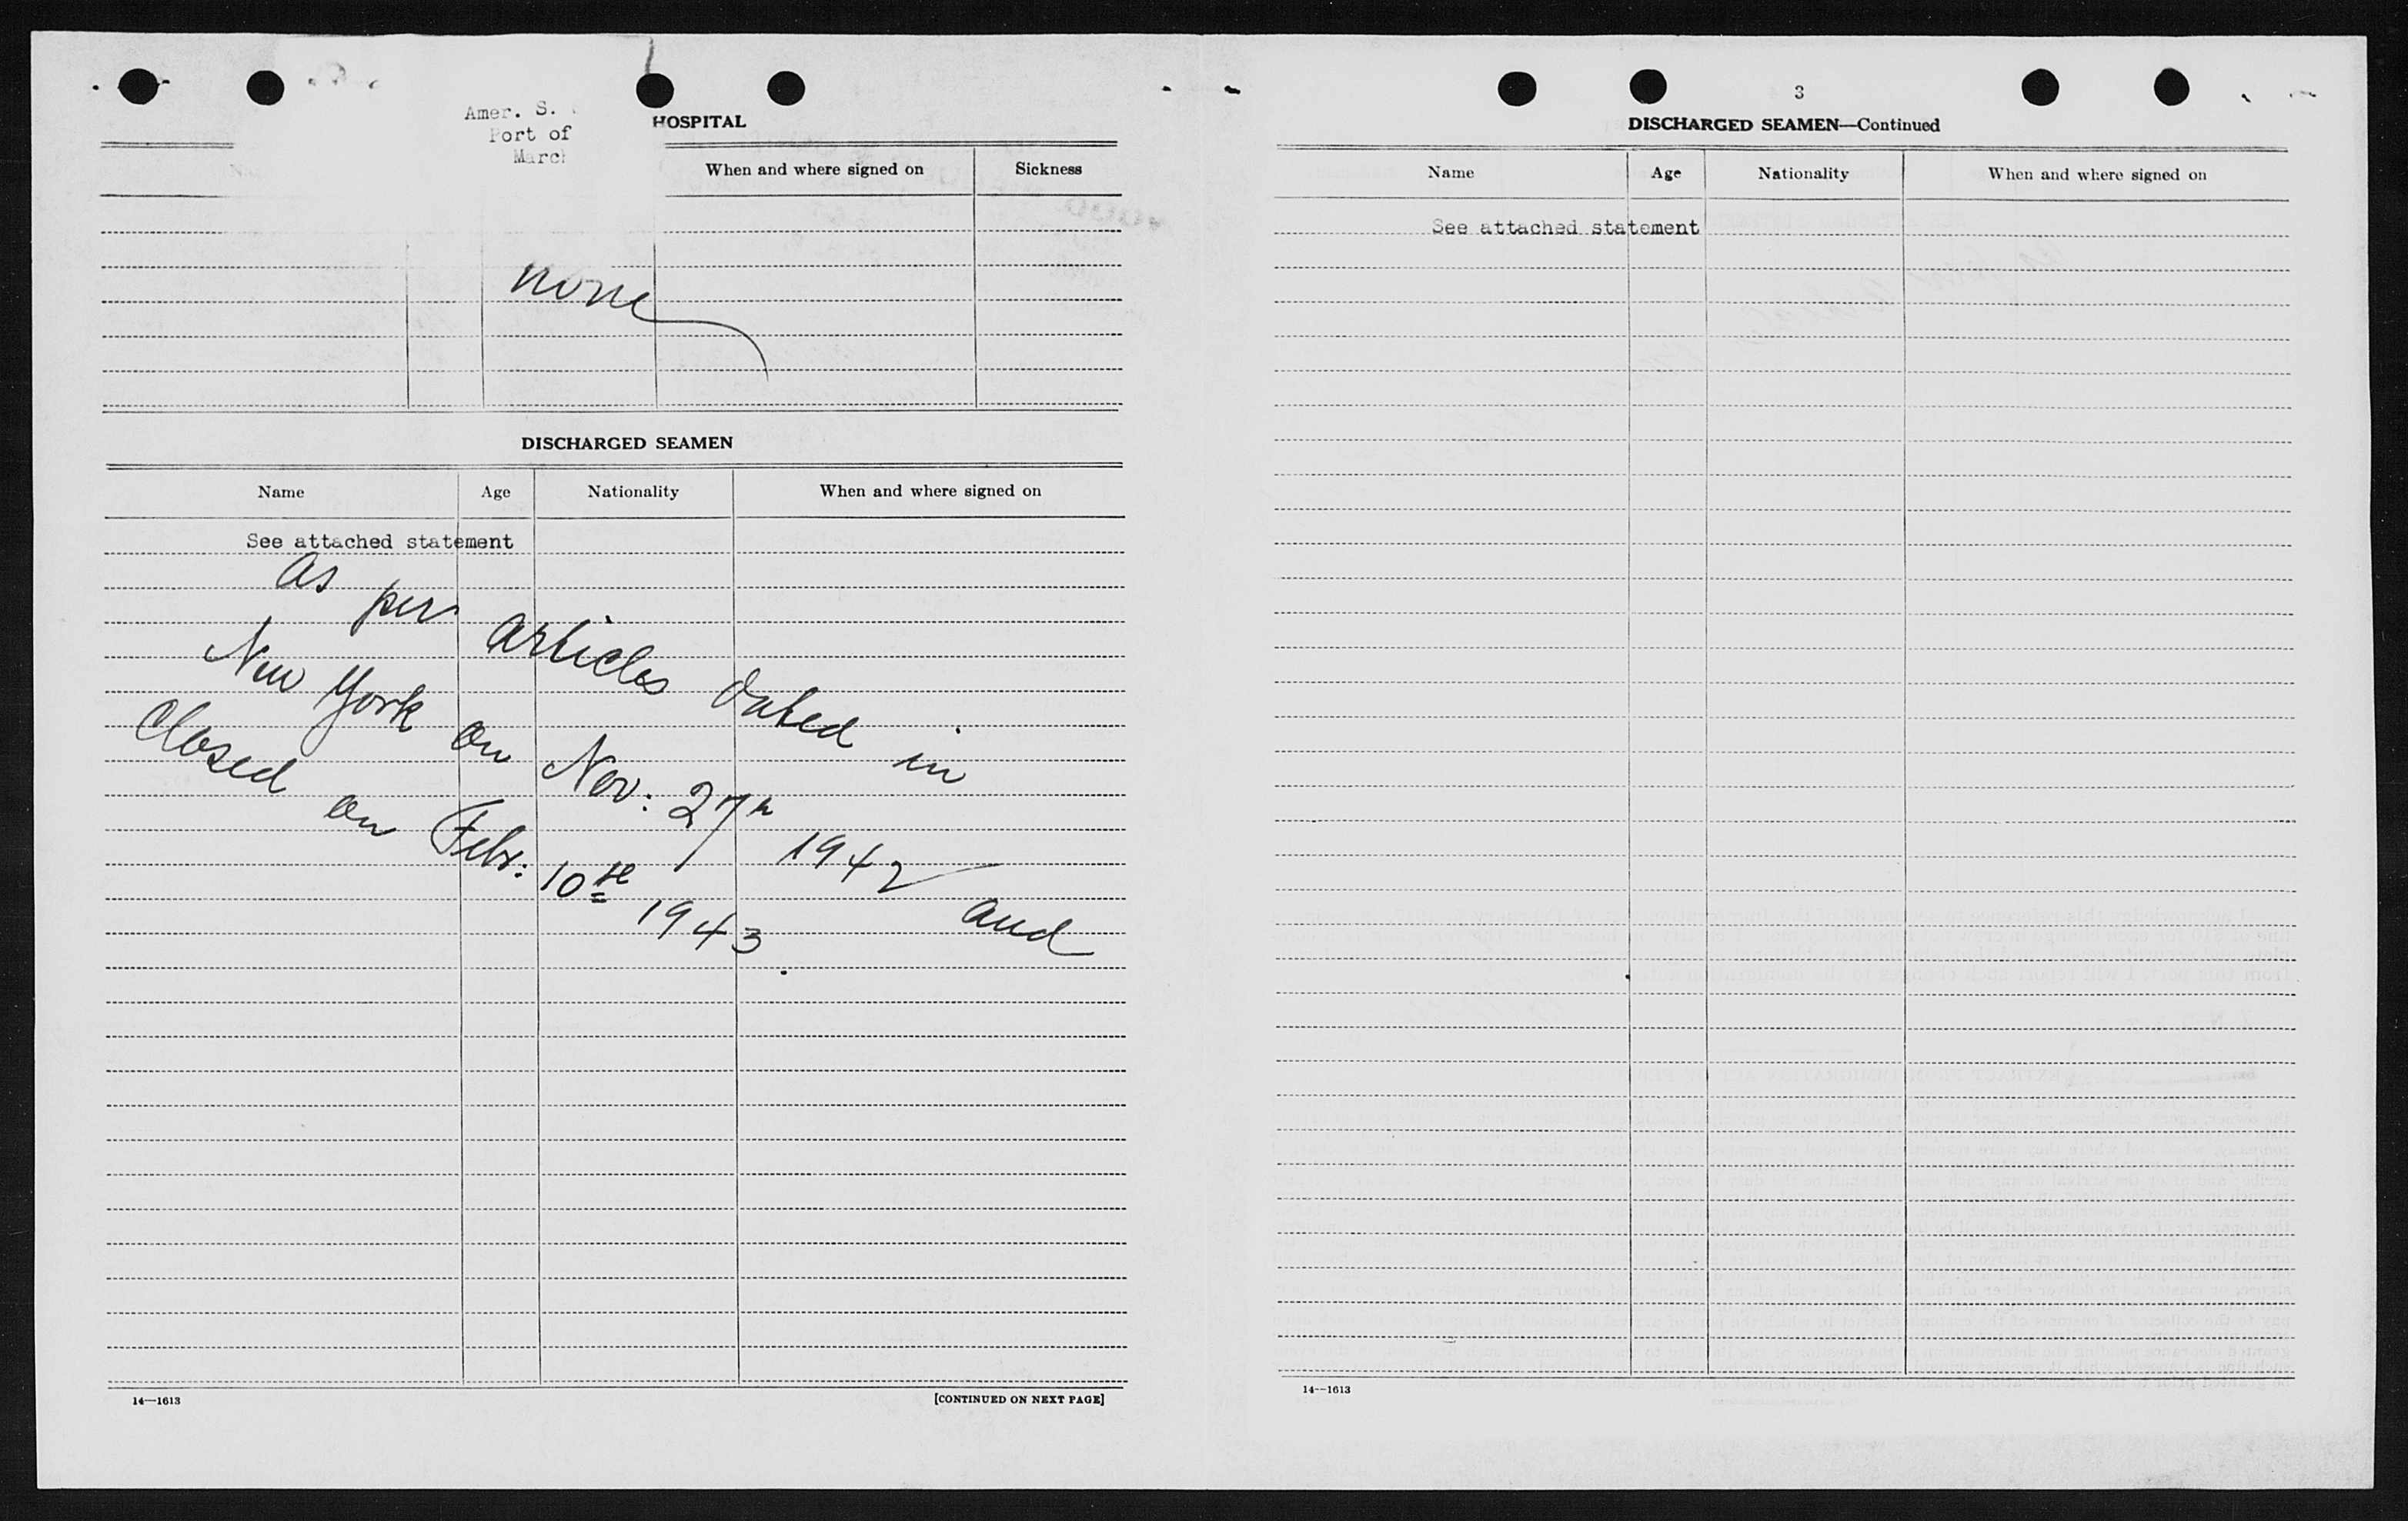 Amer. S.
Port of
March
HOSPITAL
When and where signed on
Sickness
none
DISCHARGED SEAMEN
Name
Age
Nationality
When and where signed on
See attached statement
As per articles dated in
New York on Nov: 27th 1942 and
Closed on Febr: 10th 1943.
14—1613
[CONTINUED ON NEXT PAGE]
3
DISCHARGED SEAMEN—Continued
Name
Age
Nationality
When and where signed on
See attached statement
14—1613